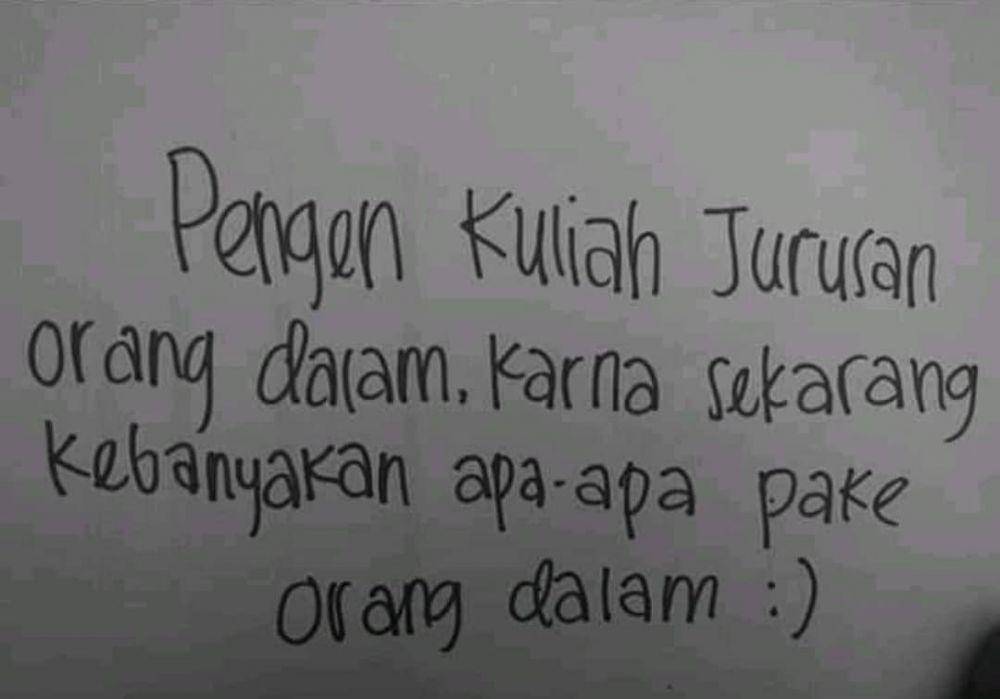 Pengen Kuliah Jurusan
orang dalam. karna sekarang
kebanyakan apa-apa pake
orang dalam :)